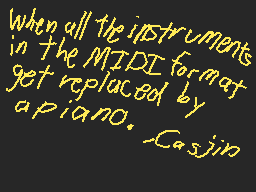 When all the instruments
in the MIDI format
get replaced by
a piano.
-Casjin